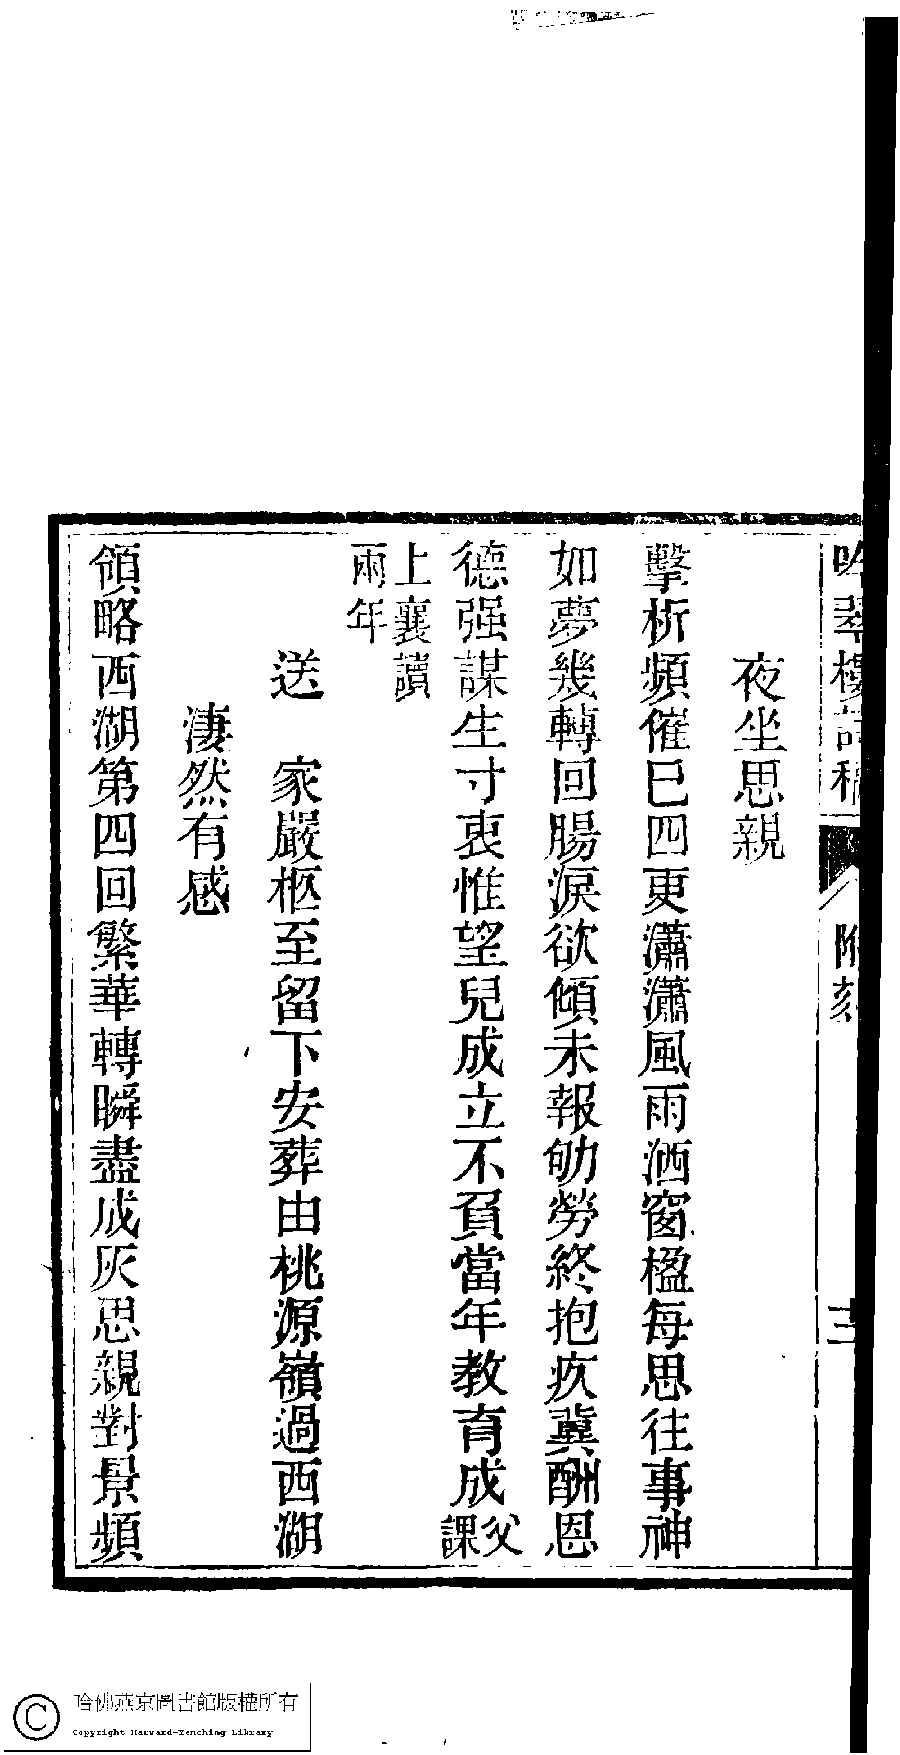 吟翠樓詩稿 附刻
夜坐思親
擊析頻催巳四更瀟瀟風雨洒窗楹每思往事神
如夢幾轉回腸淚欲傾未報劬勞終抱疚冀酬恩
德强謀生寸衷惟望兒成立不負當年教育成父課
上襄讀
兩年
送　家嚴柩至留下安葬由桃源嶺過西湖
淒然有感
領略西湖第四回繁華轉瞬盡成灰思親對景頻
哈佛燕京圖書館版權所有
Copyright Harvard-Yenching Library